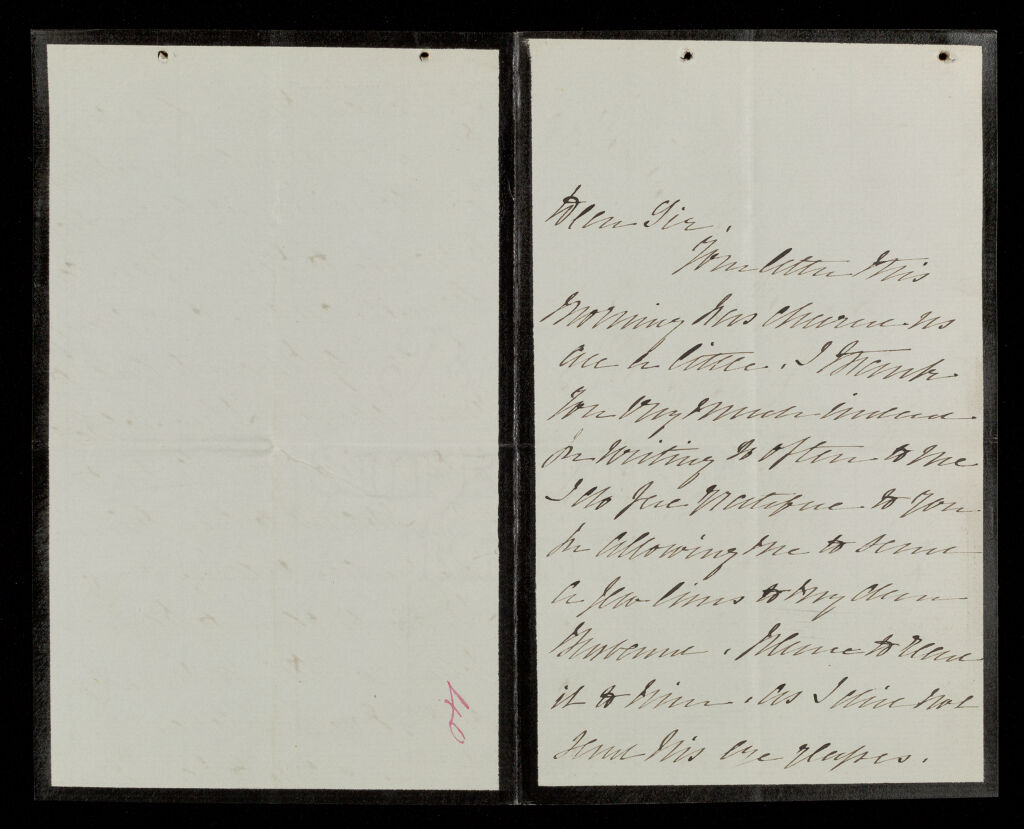 40
Dear Sir,
Your letter this
Morning has cheered us
all a little. I thank
You Very Much indeed
for Writing so often to me
I do feel gratefull to you
for allowing me to send
a few lines to My dear
Husband. Please to read
it to him. as I did not
send his eye glasses.